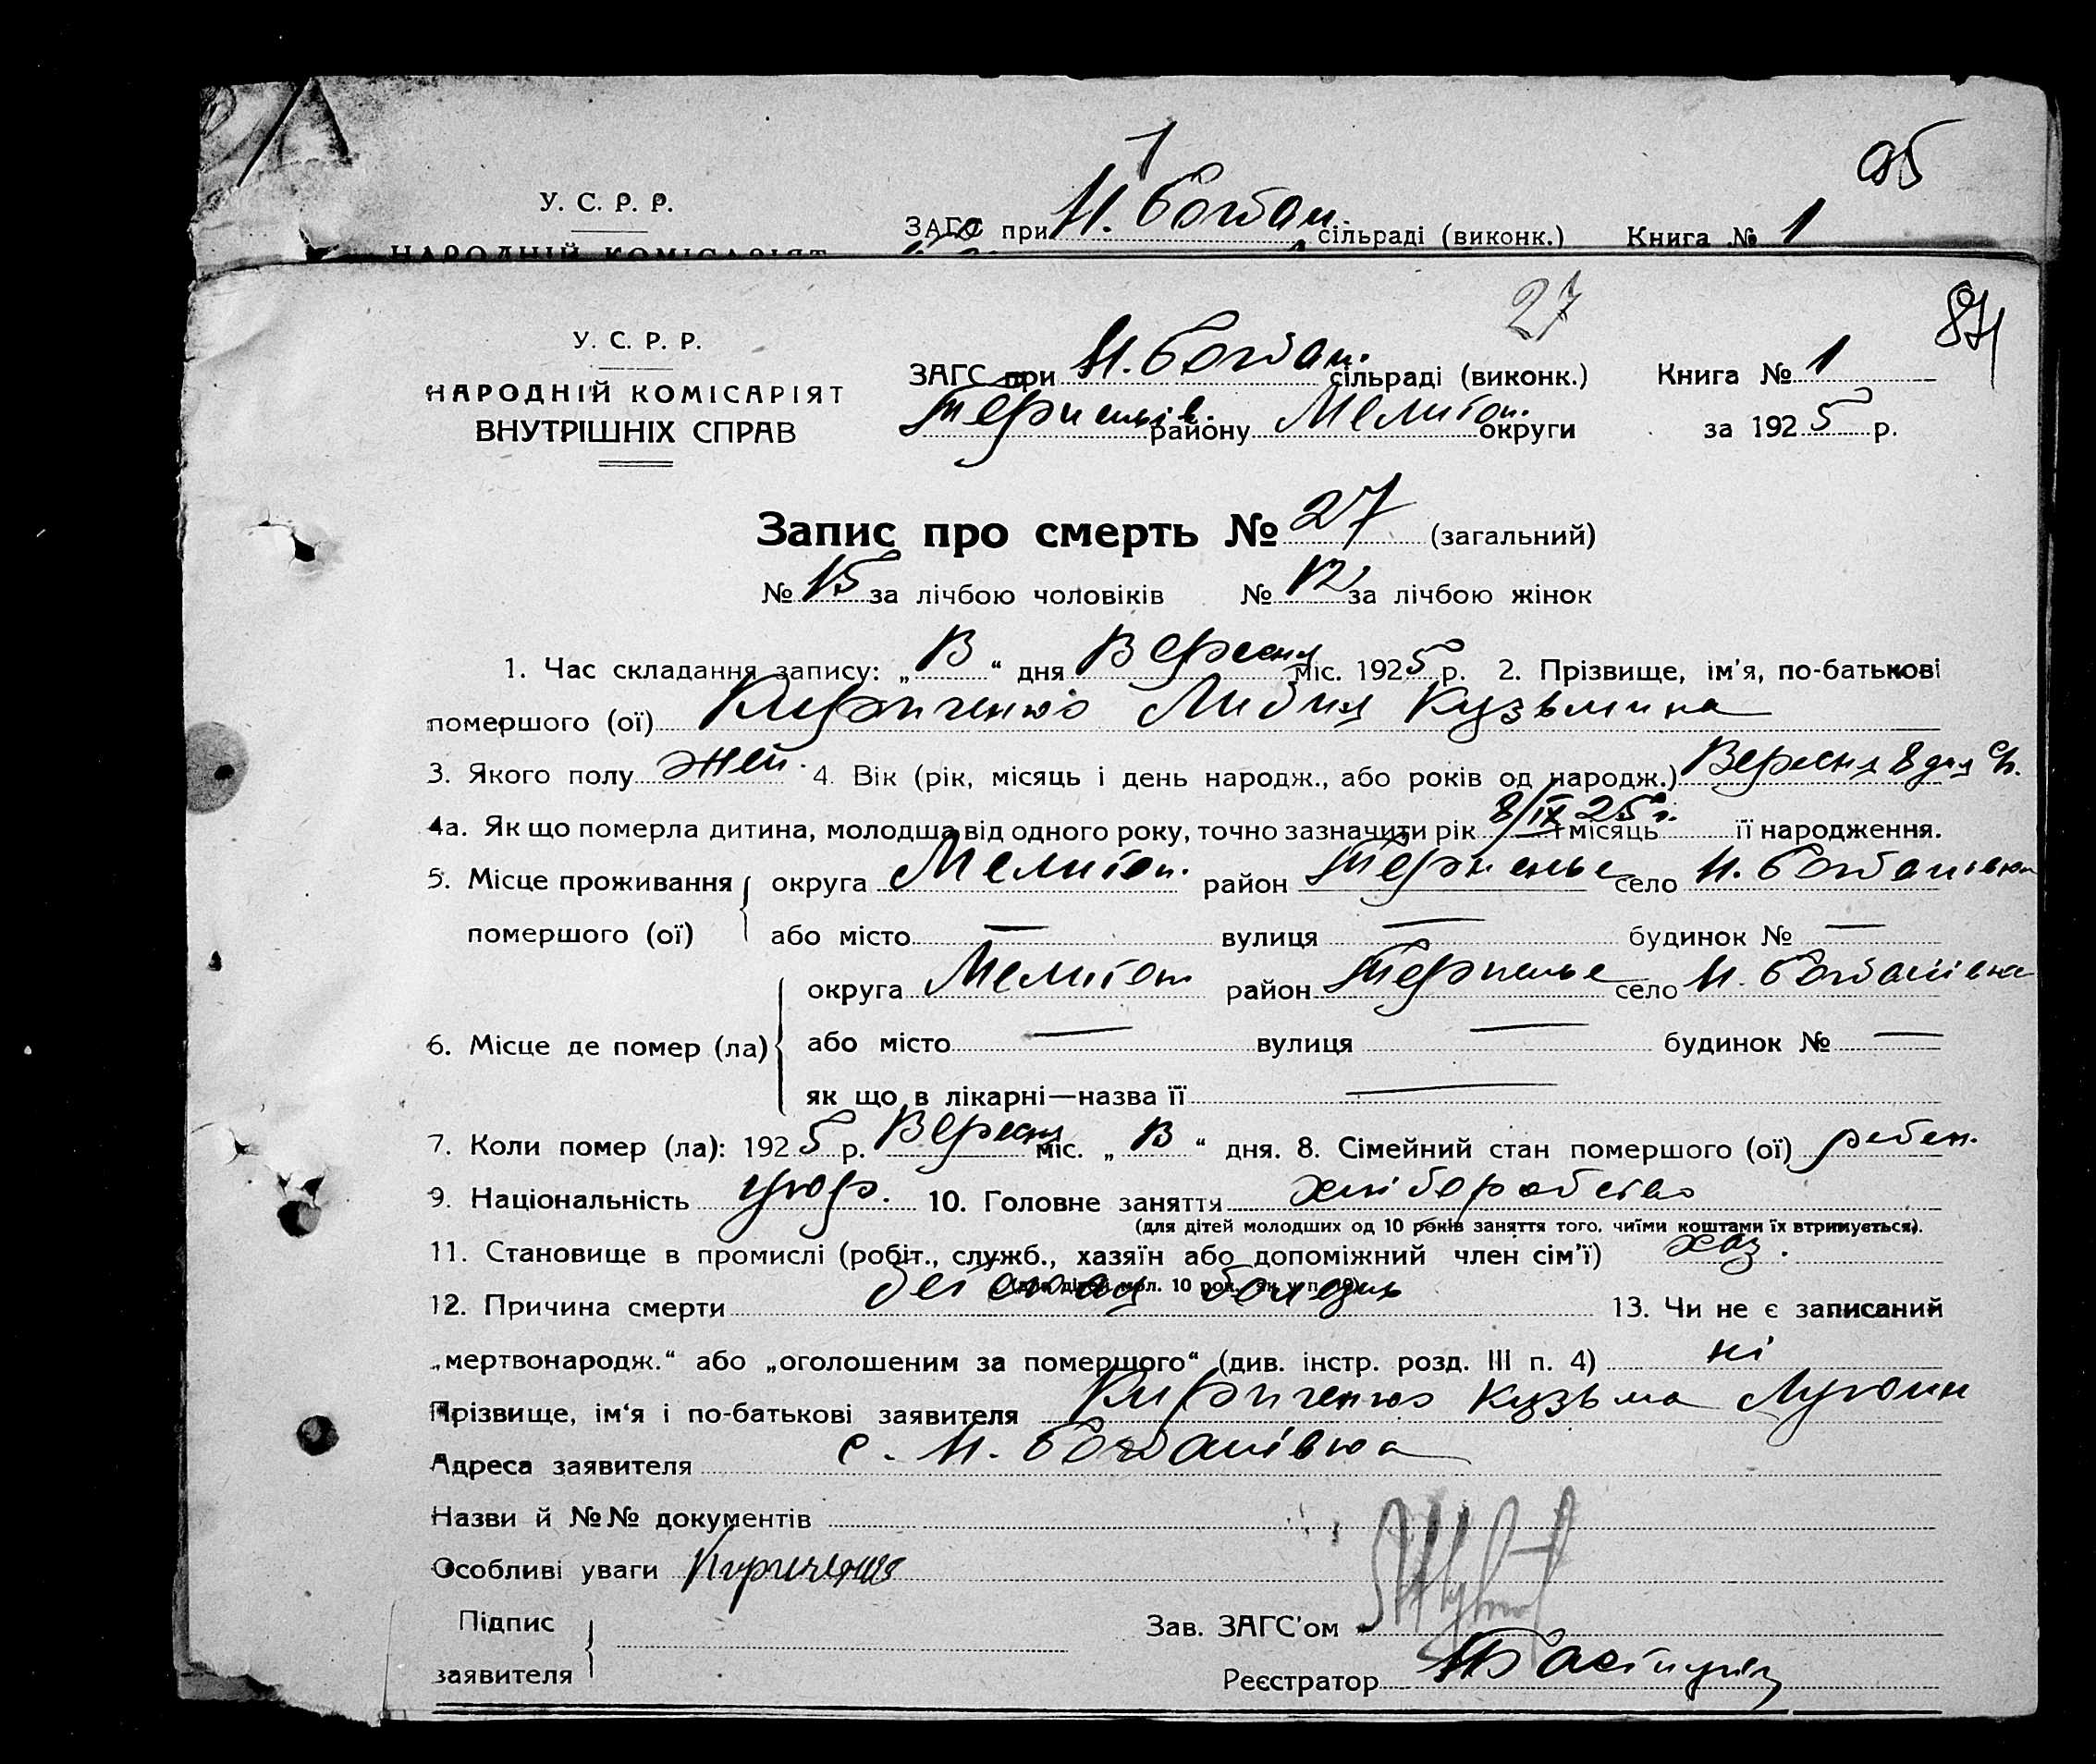 95
1
У. С. Р. Р.
ЗАГС при Н. Богдан. сільраді (виконк.) Книга № 1
НАРОДНІЙ КОМІСАРІЯТ
27
87
У. С. Р. Р.
НАРОДНІЙ КОМІСАРІЯТ
ВНУТРІШНІХ СПРАВ
ЗАГС при Н. Богдан. сільраді (виконк.) Книга № 1
Терпеньів. району Мелитоп. округи за 1925 р.
Запис про смерть № 27 (загальний)
№ 15 за лічбою чоловіків № 12 за лічбою жінок
1. Час складання запису: „ 13 “ дня Вересня міс. 1925 р. 2. Прізвище, ім’я, по-батькові
помершого (ої) Кириченко Лидия Кузьмина
3. Якого полу жен. 4. Вік (рік, місяць і день народж., або років од народж.) Вересня 8 дня
4а. Як що померла дитина, молодша від одного року, точно зазначити рік 8/IX 25 г. місяць її народження.
5. Місце проживання помершого (ої) округа Мелитоп. район Терпенье село Н. Богданівка
або місто — вулиця — будинок № —
6. Місце де помер (ла) округа Мелитоп район Терпенье село Н. Богданівка
або місто — вулиця — будинок № —
як що в лікарні—назва її —
7. Коли помер (ла): 1925 р. Вересня міс. „ 13 “ дня. 8. Сімейний стан помершого (ої) ребен.
9. Національність укр. 10. Головне заняття хліборобство
(для дітей молодших од 10 років заняття того, чиїми коштами їх втримується).
11. Становище в промислі (робіт., служб., хазяїн або допоміжний член сім’ї) хаз.
(для дітей мол. 10 рок. як у п. 10)
12. Причина смерти болезнь 13. Чи не є записаний
„мертвонародж.“ або „оголошеним за помершого“ (див. інстр. розд. III п. 4) ні
Прізвище, ім‘я і по-батькові заявителя Кириченко Кузьма Лукин
Адреса заявителя с. Н. Богданівка
Назви й №№ документів
Особливі уваги Кириченко
Підпис заявителя
Зав. ЗАГС’ом
Реєстратор